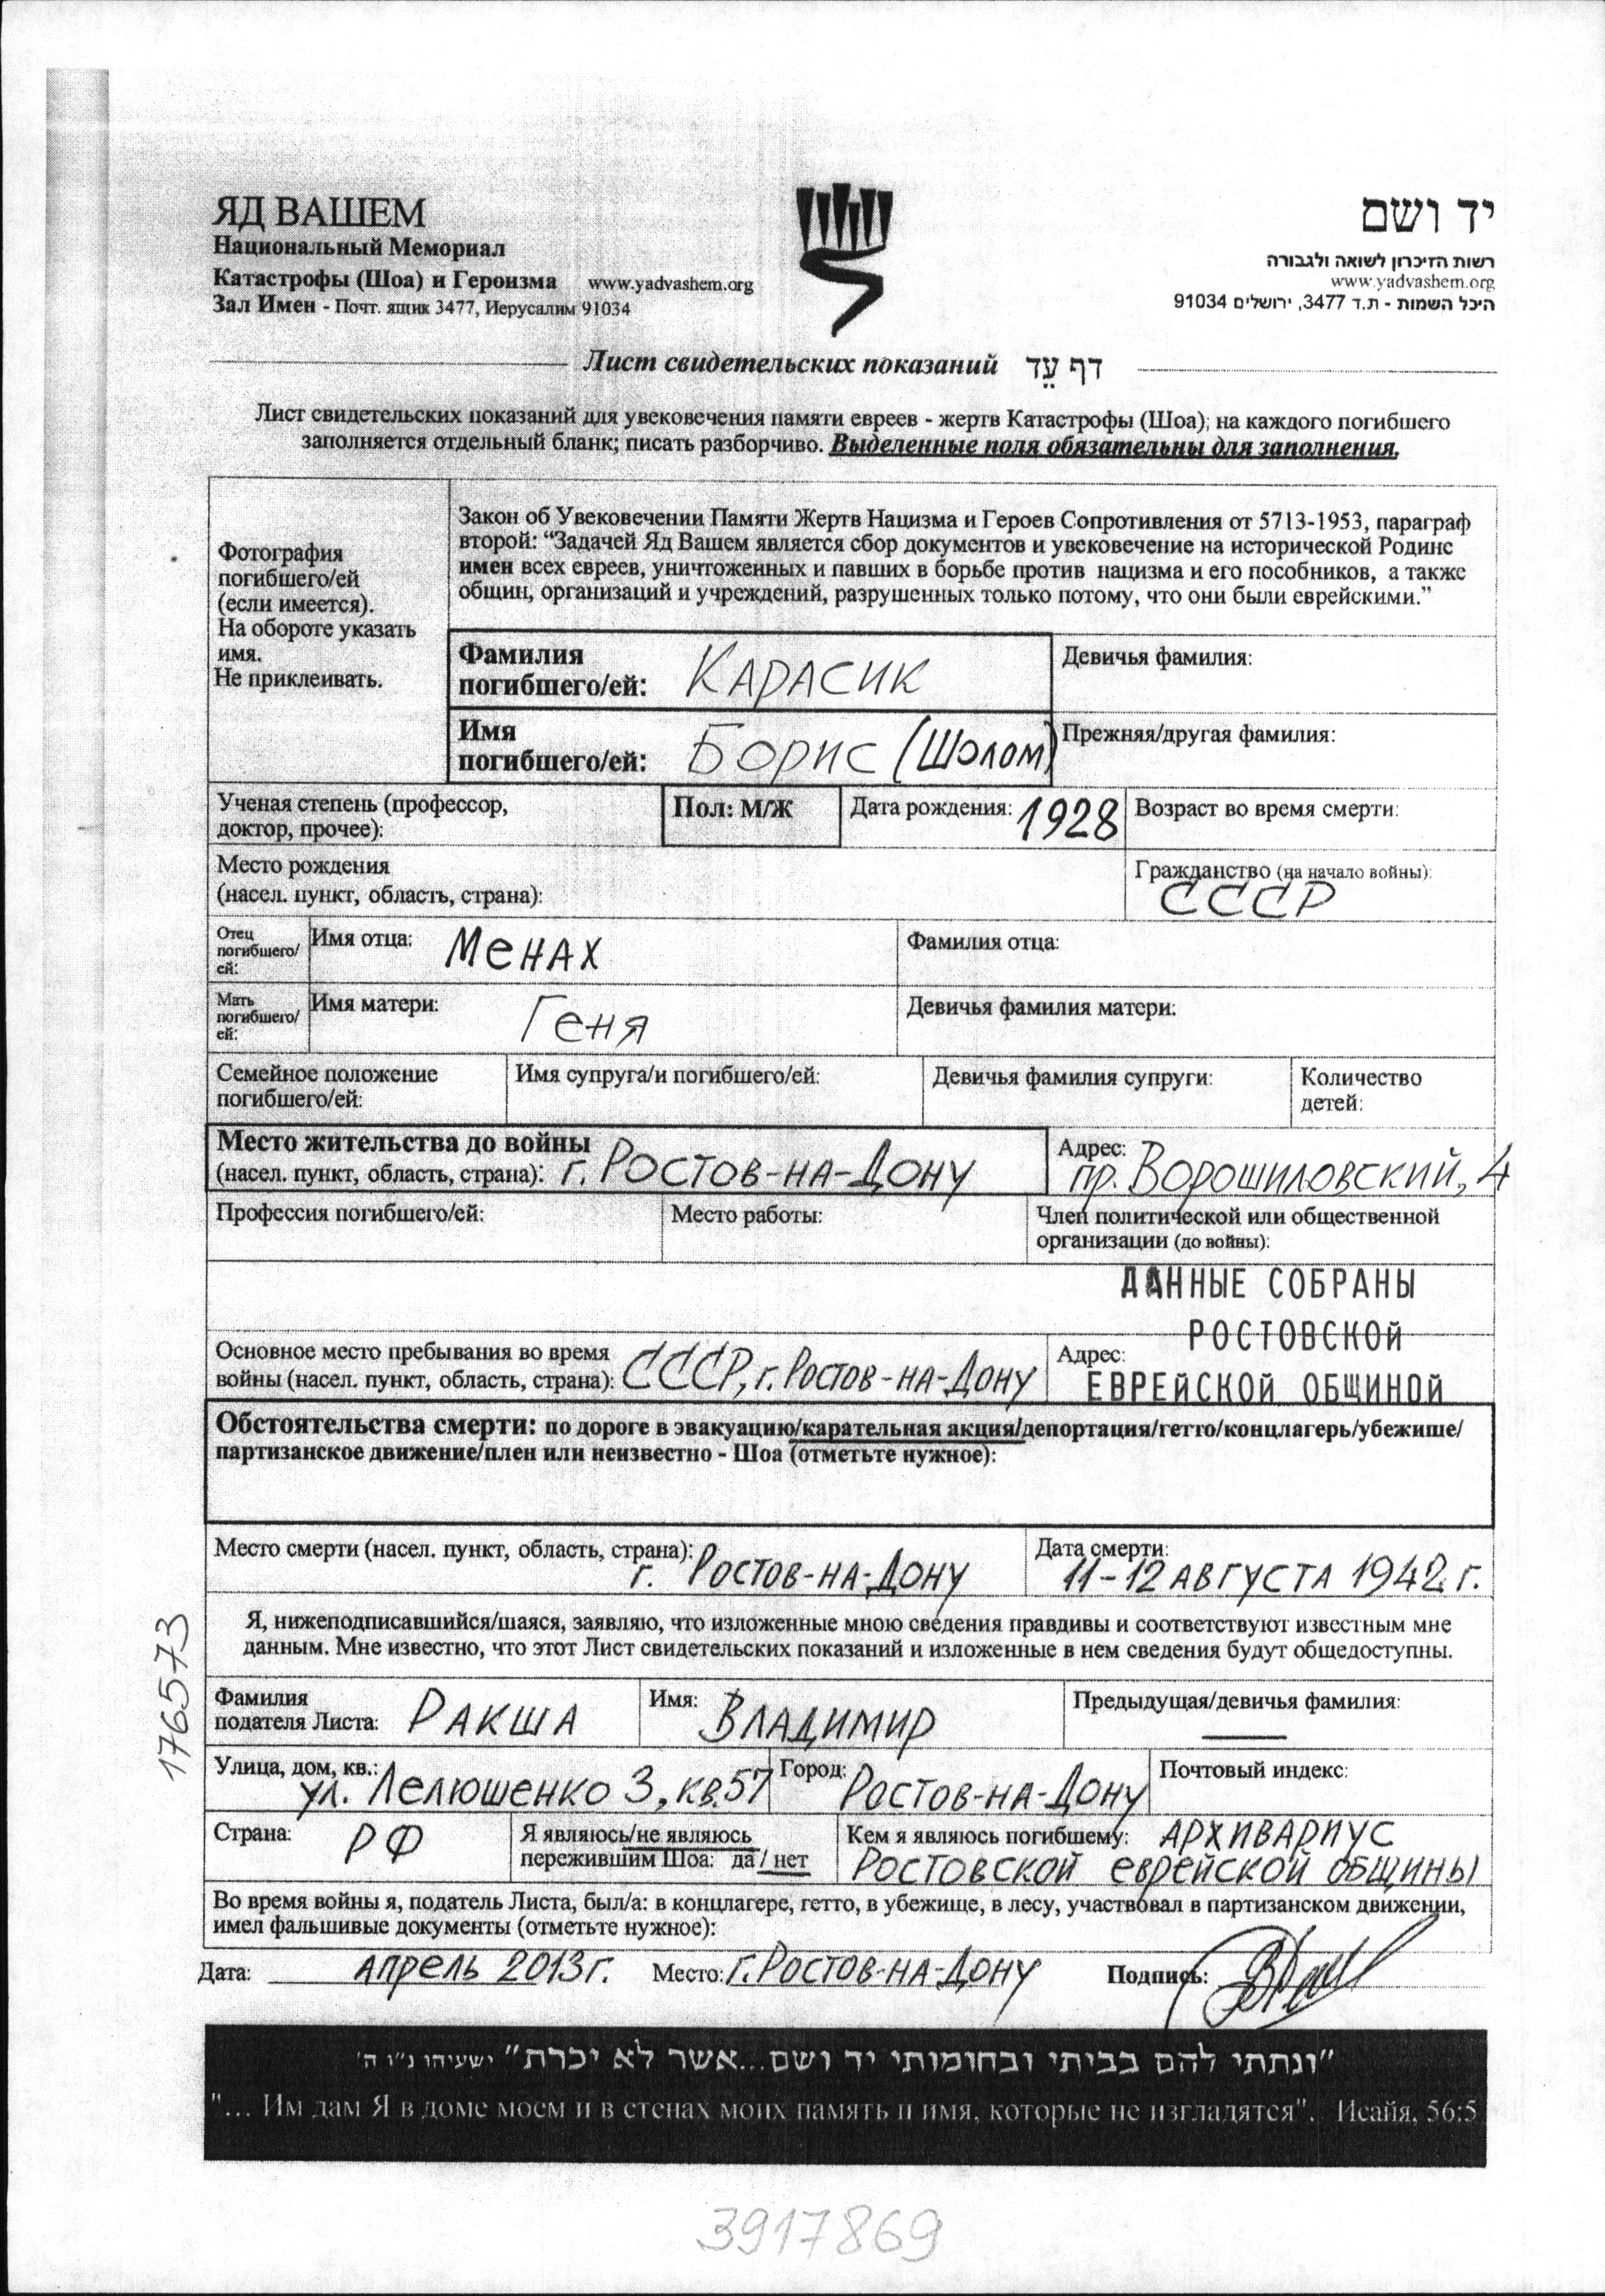 ЯД ВАШЕМ
Национальный Мемориал
Катастрофы (Шоа) и Героизма www.yadvashem.org
Зал Имен - Почт. ящик 3477, Иерусалим 91034
יד ושם
רשות הזיכרון לשואה ולגבורה
www.yadvashem.org
היכל השמות - ת.ד 3477, ירושלים 91034
Лист свидетельских показаний דף עֵד
Лист свидетельских показаний для увековечения памяти евреев - жертв Катастрофы (Шоа); на каждого погибшего
заполняется отдельный бланк; писать разборчиво. Выделенные поля обязательны для заполнения.
Фотография
погибшего/ей
(если имеется).
На обороте указать
имя.
Не приклеивать.
Закон об Увековечении Памяти Жертв Нацизма и Героев Сопротивления от 5713-1953, параграф
второй: “Задачей Яд Вашем является сбор документов и увековечение на исторической Родине
имен всех евреев, уничтоженных и павших в борьбе против нацизма и его пособников, а также
общин, организаций и учреждений, разрушенных только потому, что они были еврейскими.”
Фамилия
погибшего/ей: КАРАСИК
Девичья фамилия:
Имя
погибшего/ей: БОРИС (ШОЛОМ)
Прежняя/другая фамилия:
Ученая степень (профессор,
доктор, прочее):
Пол: М/Ж
Дата рождения: 1928
Возраст во время смерти:
Место рождения
(насел. пункт, область, страна):
Гражданство (на начало войны):
СССР
Отец
погибшего/
ей:
Имя отца: МЕНАХ
Фамилия отца:
Мать
погибшего/
ей:
Имя матери: ГЕНЯ
Девичья фамилия матери:
Семейное положение
погибшего/ей:
Имя супруга/и погибшего/ей:
Девичья фамилия супруги:
Количество
детей:
Место жительства до войны
(насел. пункт, область, страна): г. РОСТОВ-НА-ДОНУ
Адрес:
пр. ВОРОШИЛОВСКИЙ, 4
Профессия погибшего/ей:
Место работы:
Член политической или общественной
организации (до войны):
ДАННЫЕ СОБРАНЫ
РОСТОВСКОЙ
ЕВРЕЙСКОЙ ОБЩИНОЙ
Основное место пребывания во время
войны (насел. пункт, область, страна): СССР, г. РОСТОВ-НА-ДОНУ
Адрес:
Обстоятельства смерти: по дороге в эвакуацию/карательная акция/депортация/гетто/концлагерь/убежище/
партизанское движение/плен или неизвестно - Шоа (отметьте нужное):
Место смерти (насел. пункт, область, страна):
г. РОСТОВ-НА-ДОНУ
Дата смерти:
11-12 АВГУСТА 1942 г.
Я, нижеподписавшийся/шаяся, заявляю, что изложенные мною сведения правдивы и соответствуют известным мне
данным. Мне известно, что этот Лист свидетельских показаний и изложенные в нем сведения будут общедоступны.
176573
Фамилия
подателя Листа: РАКША
Имя: ВЛАДИМИР
Предыдущая/девичья фамилия:
Улица, дом, кв.:
ул. ЛЕЛЮШЕНКО 3, кв.57
Город:
РОСТОВ-НА-ДОНУ
Почтовый индекс:
Страна: РФ
Я являюсь/не являюсь
пережившим Шоа: да / нет
Кем я являюсь погибшему: АРХИВАРИУС
РОСТОВСКОЙ ЕВРЕЙСКОЙ ОБЩИНЫ
Во время войны я, податель Листа, был/а: в концлагере, гетто, в убежище, в лесу, участвовал в партизанском движении,
имел фальшивые документы (отметьте нужное):
Дата: АПРЕЛЬ 2013г. Место: г. РОСТОВ-НА-ДОНУ Подпись:
"ונתתי להם בביתי ובחומותי יד ושם...אשר לא יכרת" ישעיהו נ"ו ה'
"... Им дам Я в доме моем и в стенах моих память и имя, которые не изгладятся". Исайя, 56:5
3917869